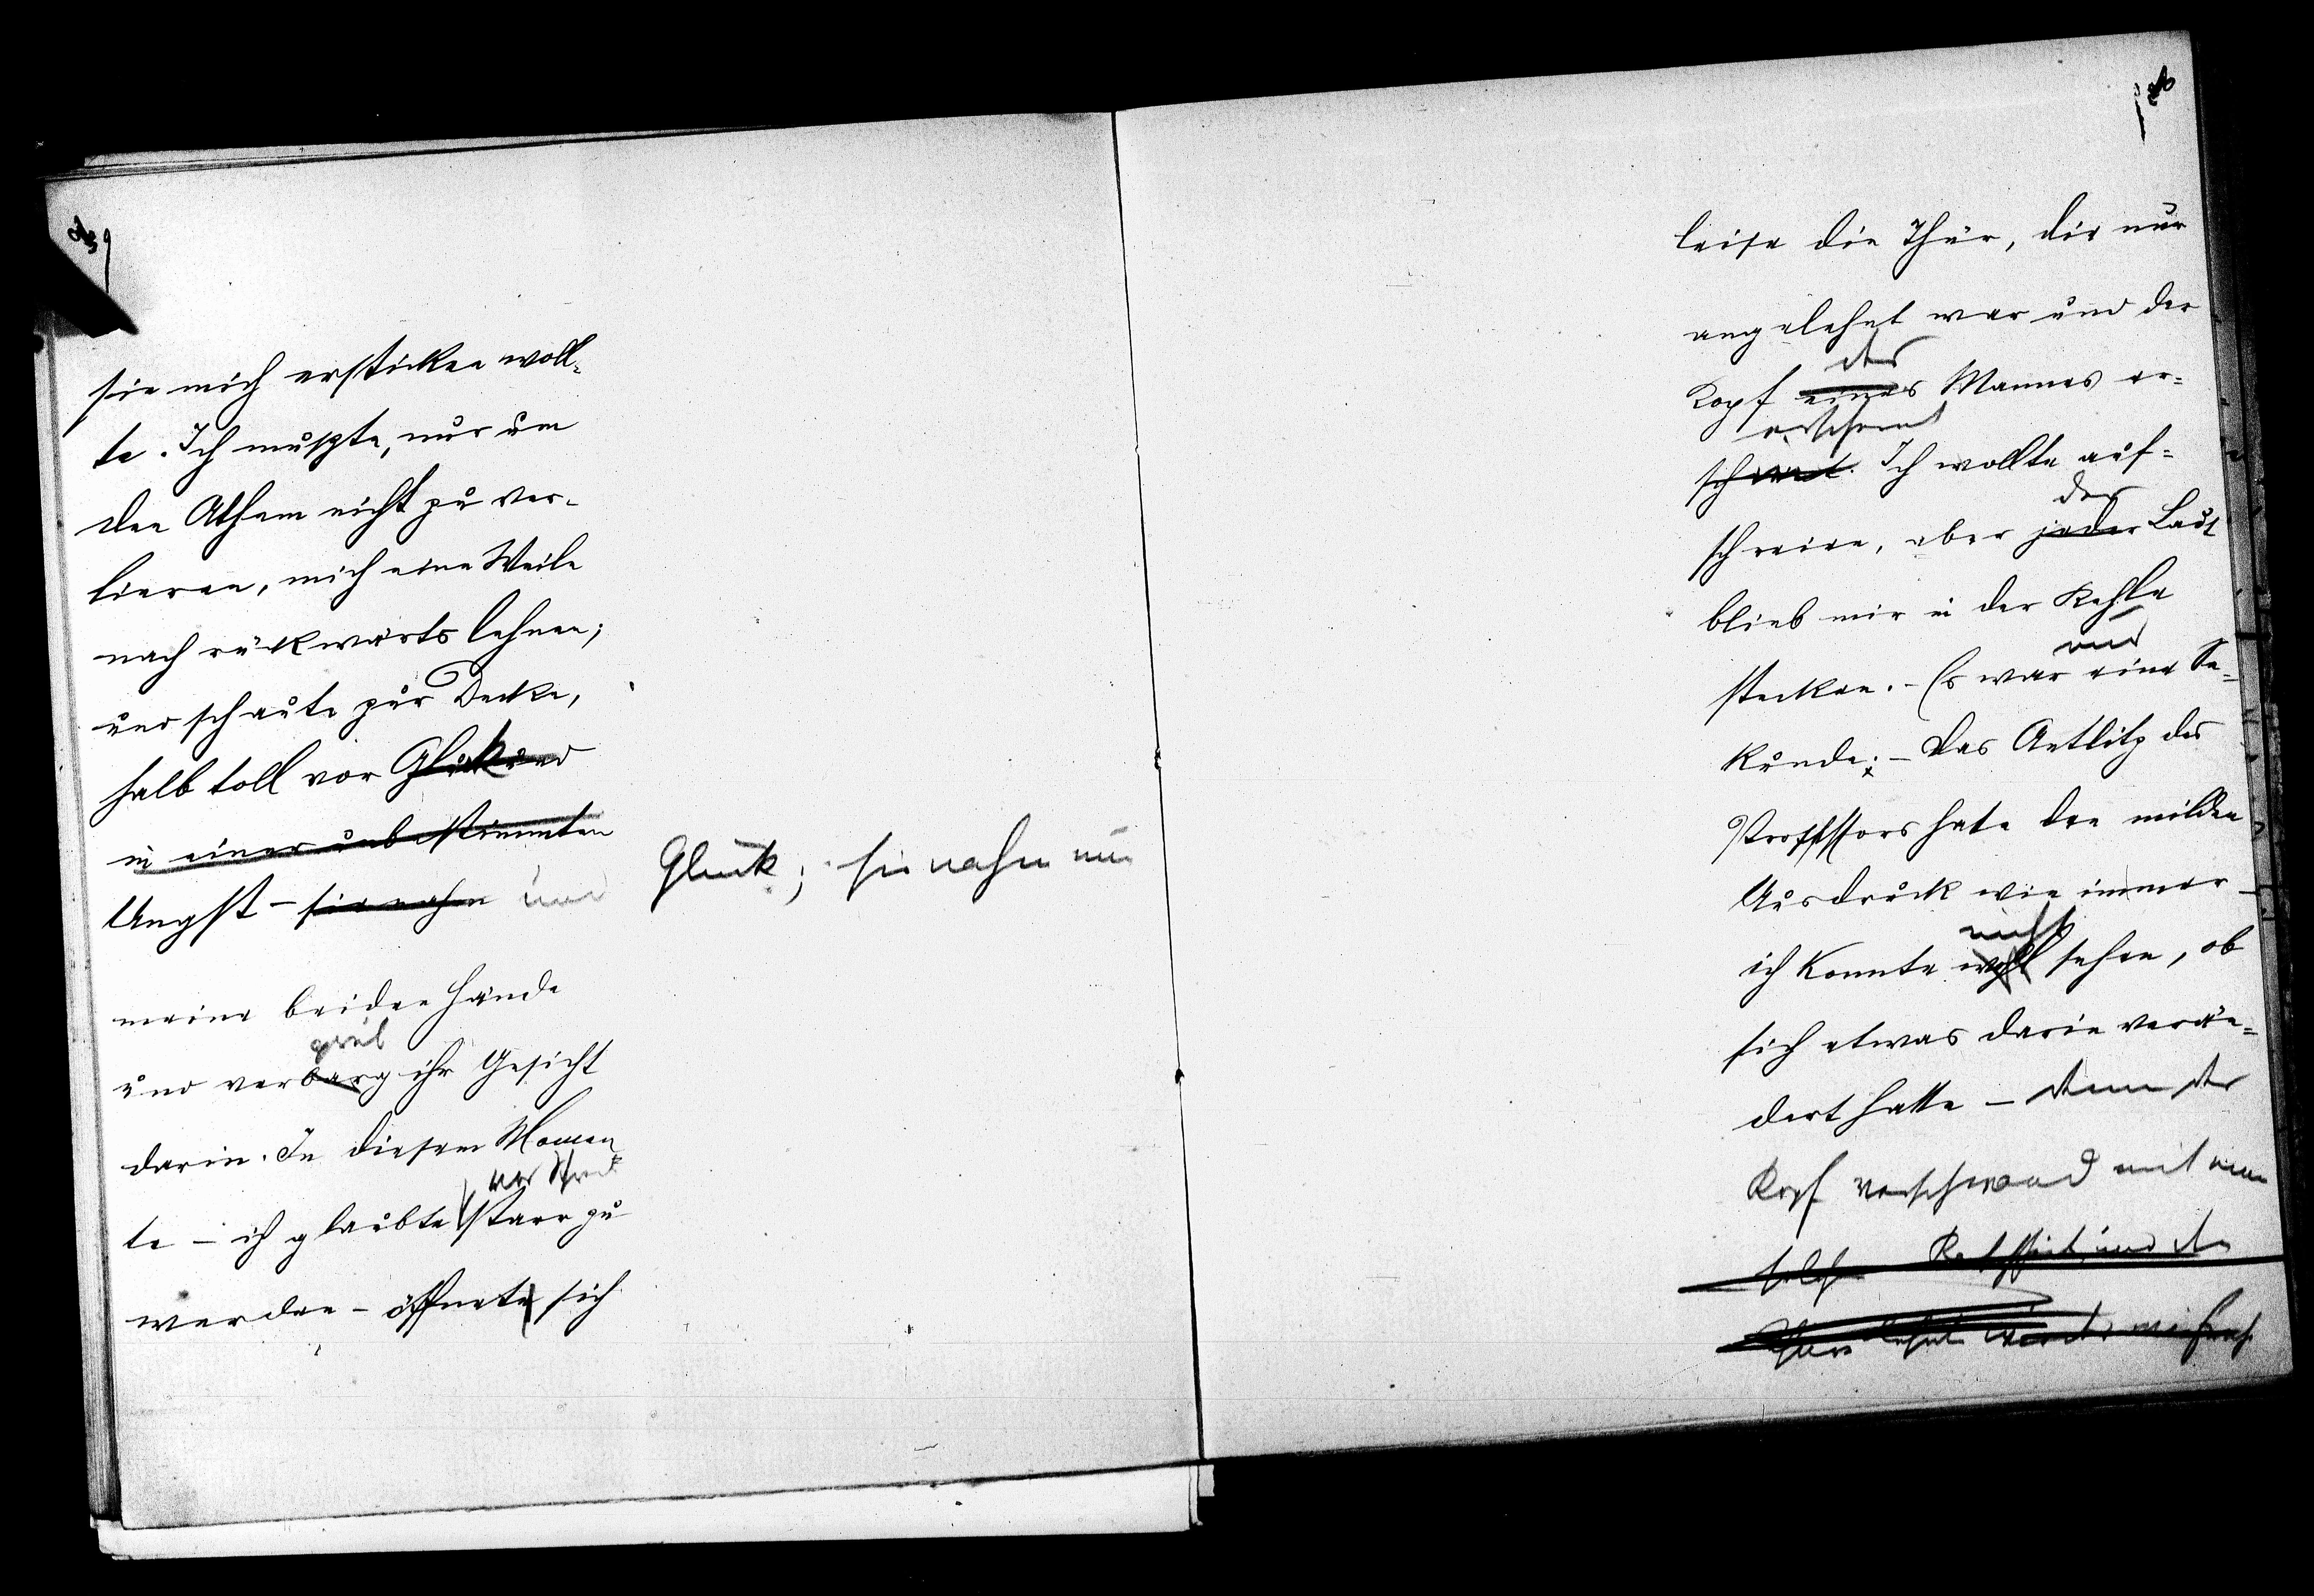 sie mich ersticken woll-
te. Ich mußte, nur um
den Athem nicht zu ver-
lieren, mich eine Weile
nach rückwärts lehnen;
und schaute zur Decke,
halb toll vor Glück und
in einer unbestimmten
Angst – sie nahm und
Glück; sie nahm nun
meine beiden Hände
grub
und verbarg ihr Gesicht
darin. In diesem Momen
te – ich glaubte starr zu
werden – öffnete sich
leise die Thür, die nur
angelehnt war und der
des
Kopf eines Mannes er-
erscheint
scheint. Ich wollte auf-
der
schreien, aber jeder Laut
blieb mir in der Kehle
und
stecken. – Es war eine Se-
kunde; – Das Antlitz des
Professors hatte den milden
Ausdruck wie immer –
nicht
ich konnte wohl sehen, ob
sich etwas darin verän-
dert hatte – denn der
Kopf verschwand mit einer
solchen und der